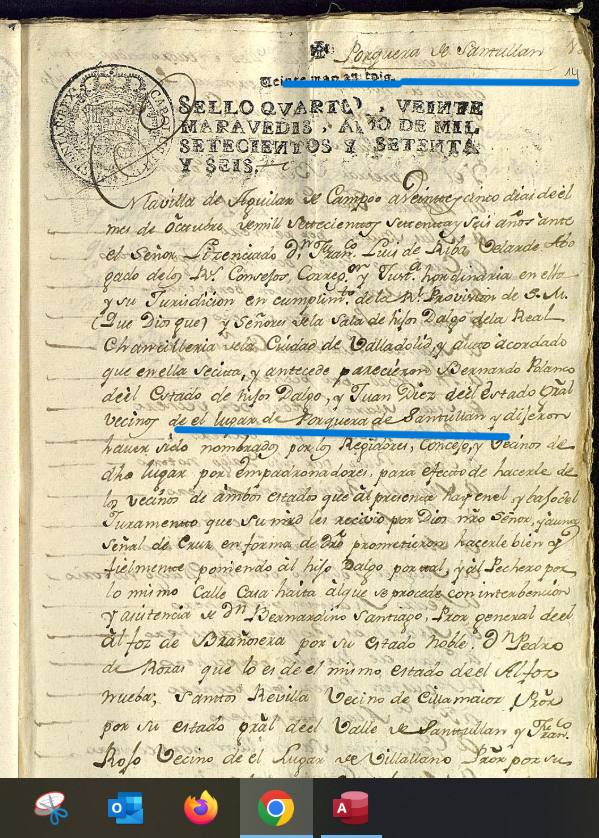 Porquera de Santullan
14
SELLO QVARTO, VEINTE
MARAVEDIS, AÑO DE MIL
SETECIENTOS Y SETENTA
Y SEIS.
Nlavilla de Aguilar de Campo a Veinte y cinco dias de el
mes de Octubre de mill Settecientos Settenta y seis años ante
el Señor Lizenciado Dn. Franco. Luis de Riba Velarde Abo
gado de los Rs. Consejos, Corregor. y Justa. hordinaria en ella
y su Jurisdicion en cumplimto. de la Rl. Provision de S. M.
(que Dios gue) y Señores de la Sala de hijos Dalgo de la Real
Chancilleria de la Ciudad de Valladolid, y auto acordado
que en ella se cita, y antecede parecieron Bernardo Polanco
de el Estado de hijos Dalgo, y Juan Diez de el estado Gral
vecinos de el lugar de Porquera de Santullan y dijeron
haver sido nombrados por los Regidores, Concejo, y Vecinos de
dho lugar por empadronadores, para efecto de hacerle de
los vecinos de ambos estados que al presente hay en el, y bajo del
Juramento que su mrd les recivio por Dios nro Señor, y a una
señal de Cruz en forma de dro prometieron hacerle bien y
fielmente poniendo al hijo Dalgo por tal, y al Pechero por
lo mismo Calle Casa haita sin que se procede con interbencion
y asistencia de Dn Bernardino Santiago, Pror general de el
alfoz de Brañosera por su Estado Noble, Dn Pedro
de Rozas que lo es de el mismo estado de el Alfoz
Santos Revilla Vecino de Cillamaior Pror
por su estado gral de el Valle de Santullan y Franco.
Roso Vecino de el Lugar de Villallano Pror por su